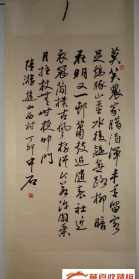 莫笑農家臘酒渾丰年留客
足雞豚山重水複疑無路柳暗
花明又一邨簫鼓追隨春社近
衣冠簡樸古風存從今若許閒乘
月拄杖無時夜叩門
陸游遊山西村 中石